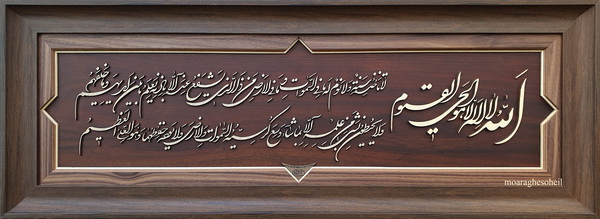 الله لا اله الا هو الحی القیوم
لا تاخذه سنة و لا نوم له ما فی السموات و ما فی الارض من ذا الذی یشفع عنده الا باذنه یعلم ما بین ایدیهم و ما خلفهم
و لا یحیطون بشیء من علمه الا بما شاء وسع کرسیه السموات و الارض و لا یؤده حفظهما و هو العلی العظیم
moaraghesoheil